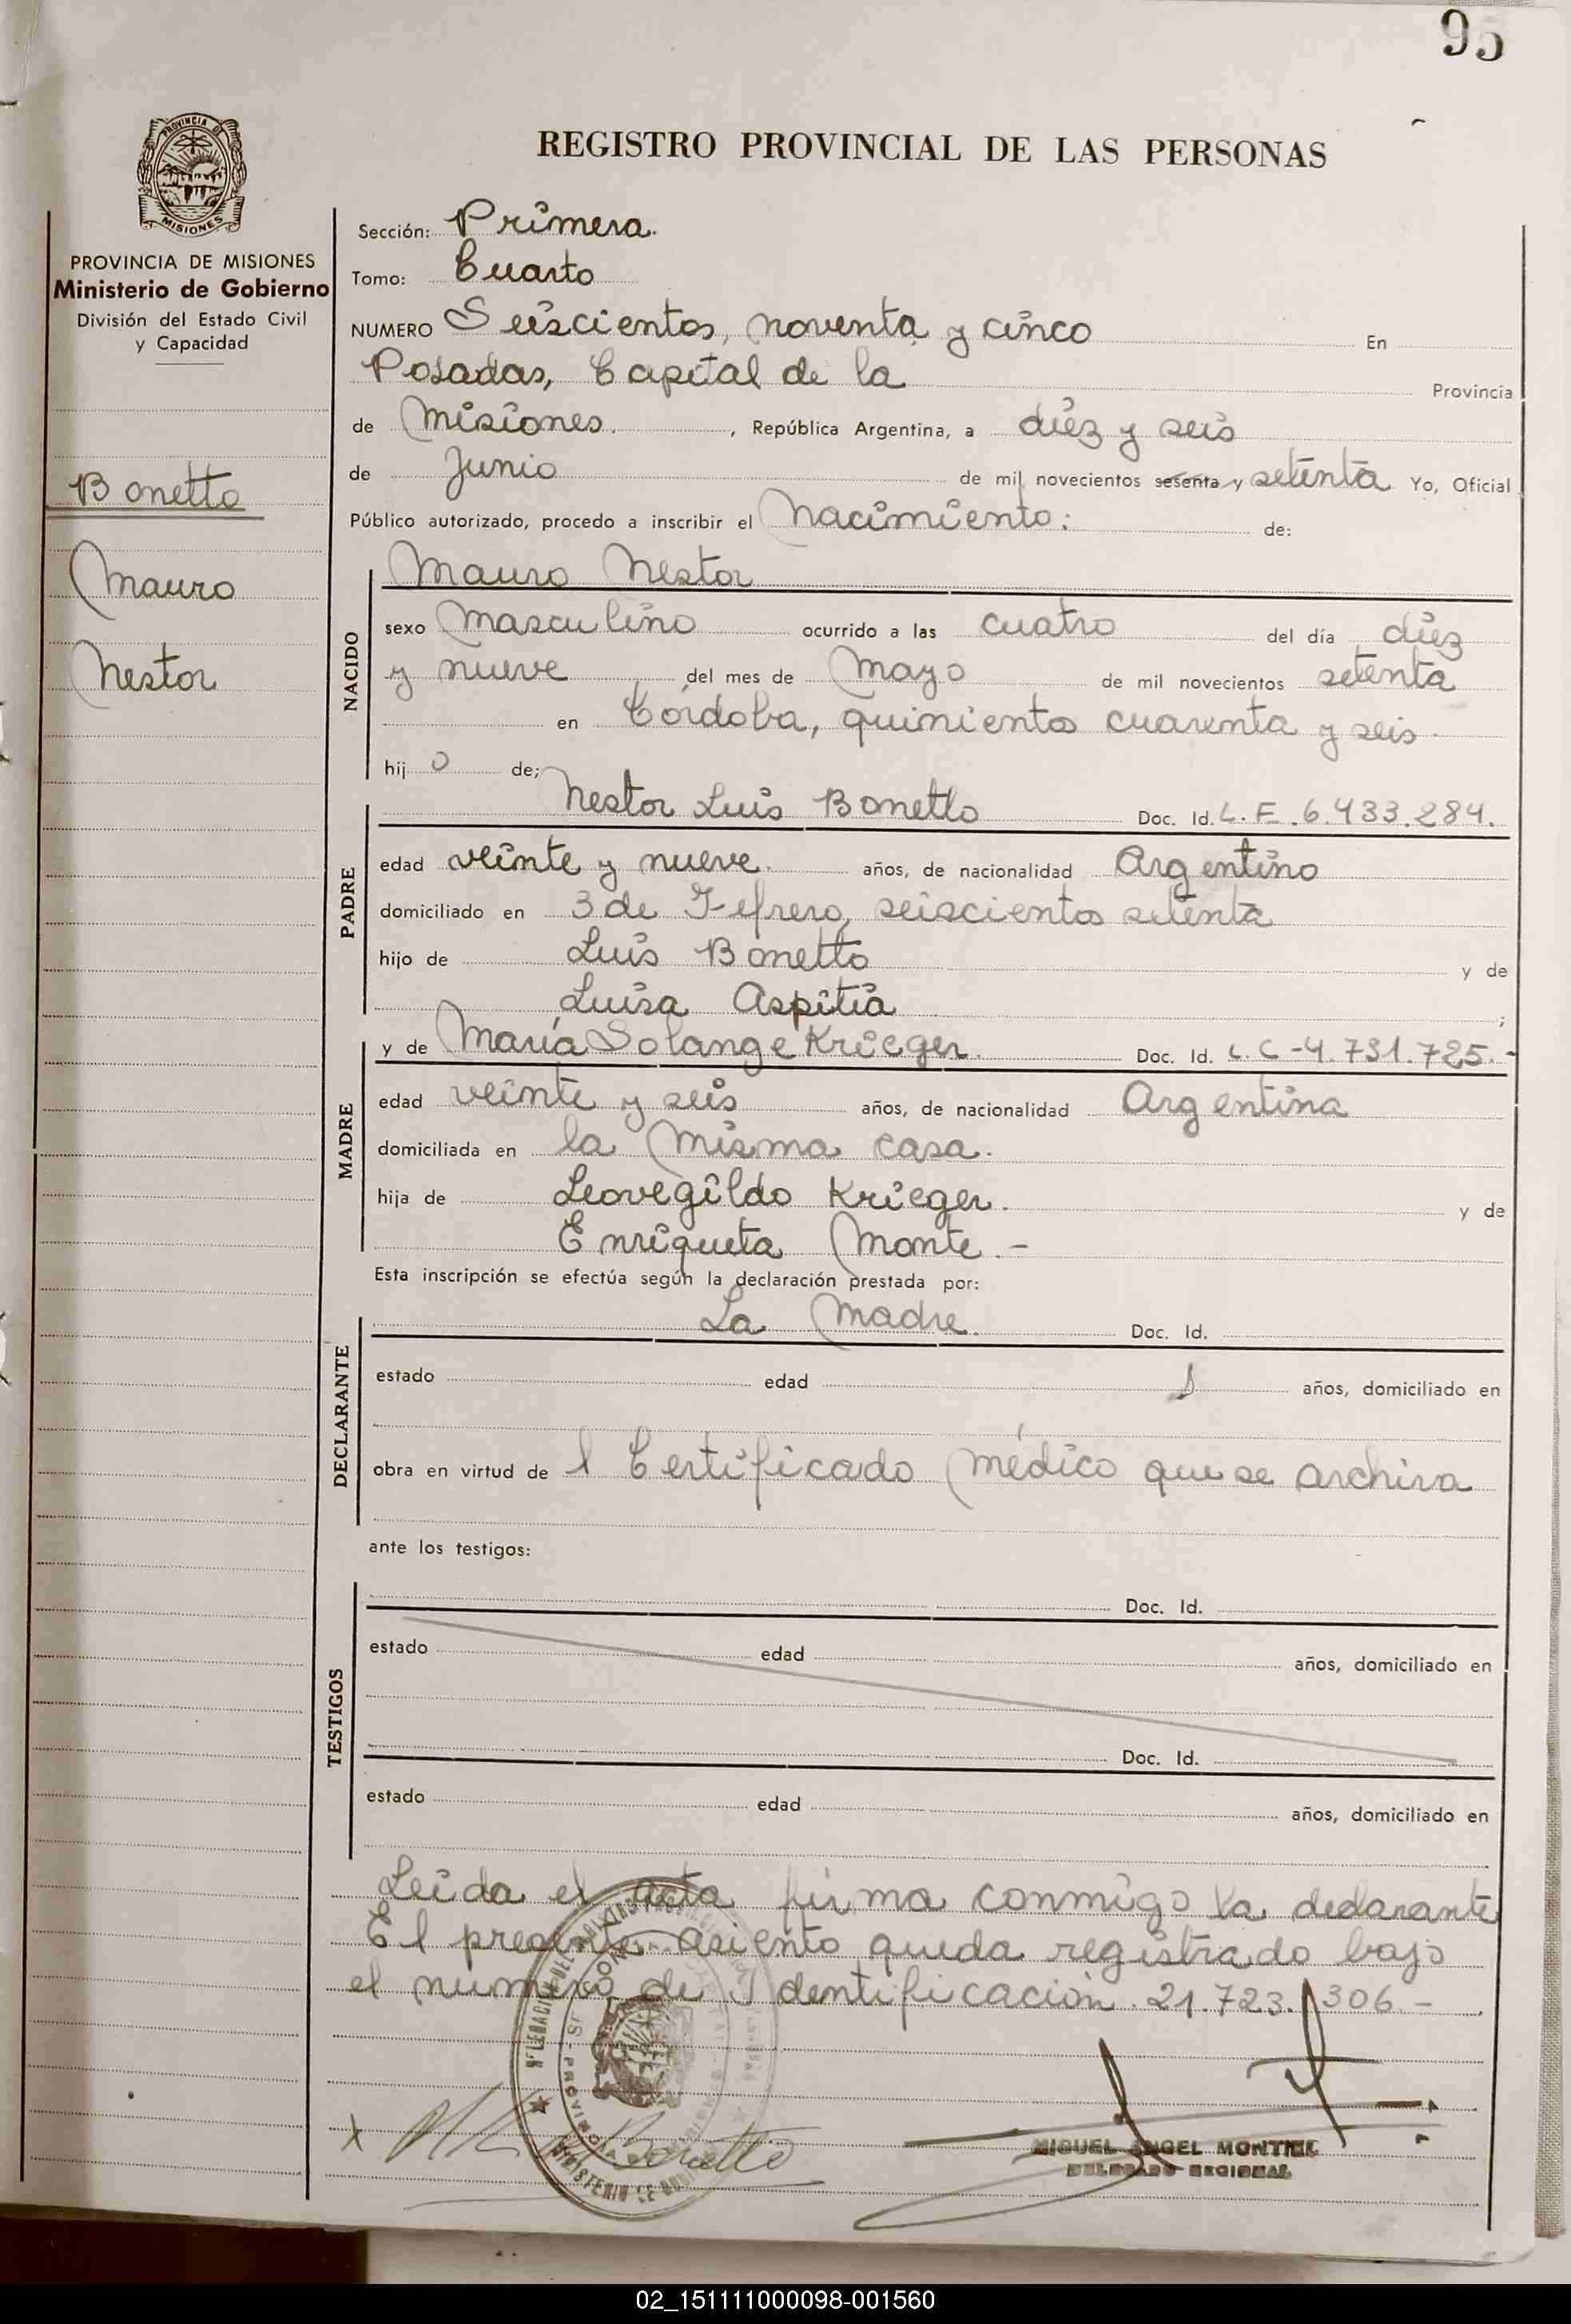 95
PROVINCIA DE
MISIONES
REGISTRO PROVINCIAL DE LAS PERSONAS
PROVINCIA DE MISIONES
Ministerio de Gobierno
División del Estado Civil
y Capacidad
Bonetto
Mauro
Nestor
Sección: Primera.
Tomo: Cuarto
NUMERO Seiscientos, noventa y cinco En
Posadas, Capital de la Provincia
de Misiones. , República Argentina, a diez y seis
de Junio de mil novecientos sesenta y setenta Yo, Oficial
Público autorizado, procedo a inscribir el Nacimiento: de:
NACIDO
Mauro Nestor
sexo Masculino ocurrido a las cuatro del día diez
y nueve del mes de Mayo de mil novecientos setenta
en Córdoba, quinientos cuarenta y seis.
hij o de;
PADRE
Nestor Luis Bonetto Doc. Id. L.E. 6.433.284.
edad veinte y nueve. años, de nacionalidad Argentino
domiciliado en 3 de Febrero, seiscientos setenta
hijo de Luis Bonetto y de
Luisa Aspitia ;
MADRE
y de María Solange Krieger. Doc. Id. L.C-4.731.725.-
edad veinte y seis años, de nacionalidad Argentina
domiciliada en la misma casa.
hija de Leovegildo Krieger. y de
Enriqueta Monte.-
Esta inscripción se efectúa según la declaración prestada por:
DECLARANTE
La Madre. Doc. Id.
estado edad años, domiciliado en
obra en virtud de l Certificado médico que se archiva
ante los testigos:
TESTIGOS
Doc. Id.
estado edad años, domiciliado en
Doc. Id.
estado edad años, domiciliado en
Leida el acta firma conmigo la declarante
El presente asiento queda registrado bajo
el numero de Identificación 21.723.306.-
Bonetto
MIGUEL ANGEL MONTIEL
DELEGADO REGIONAL
02_151111000098-001560